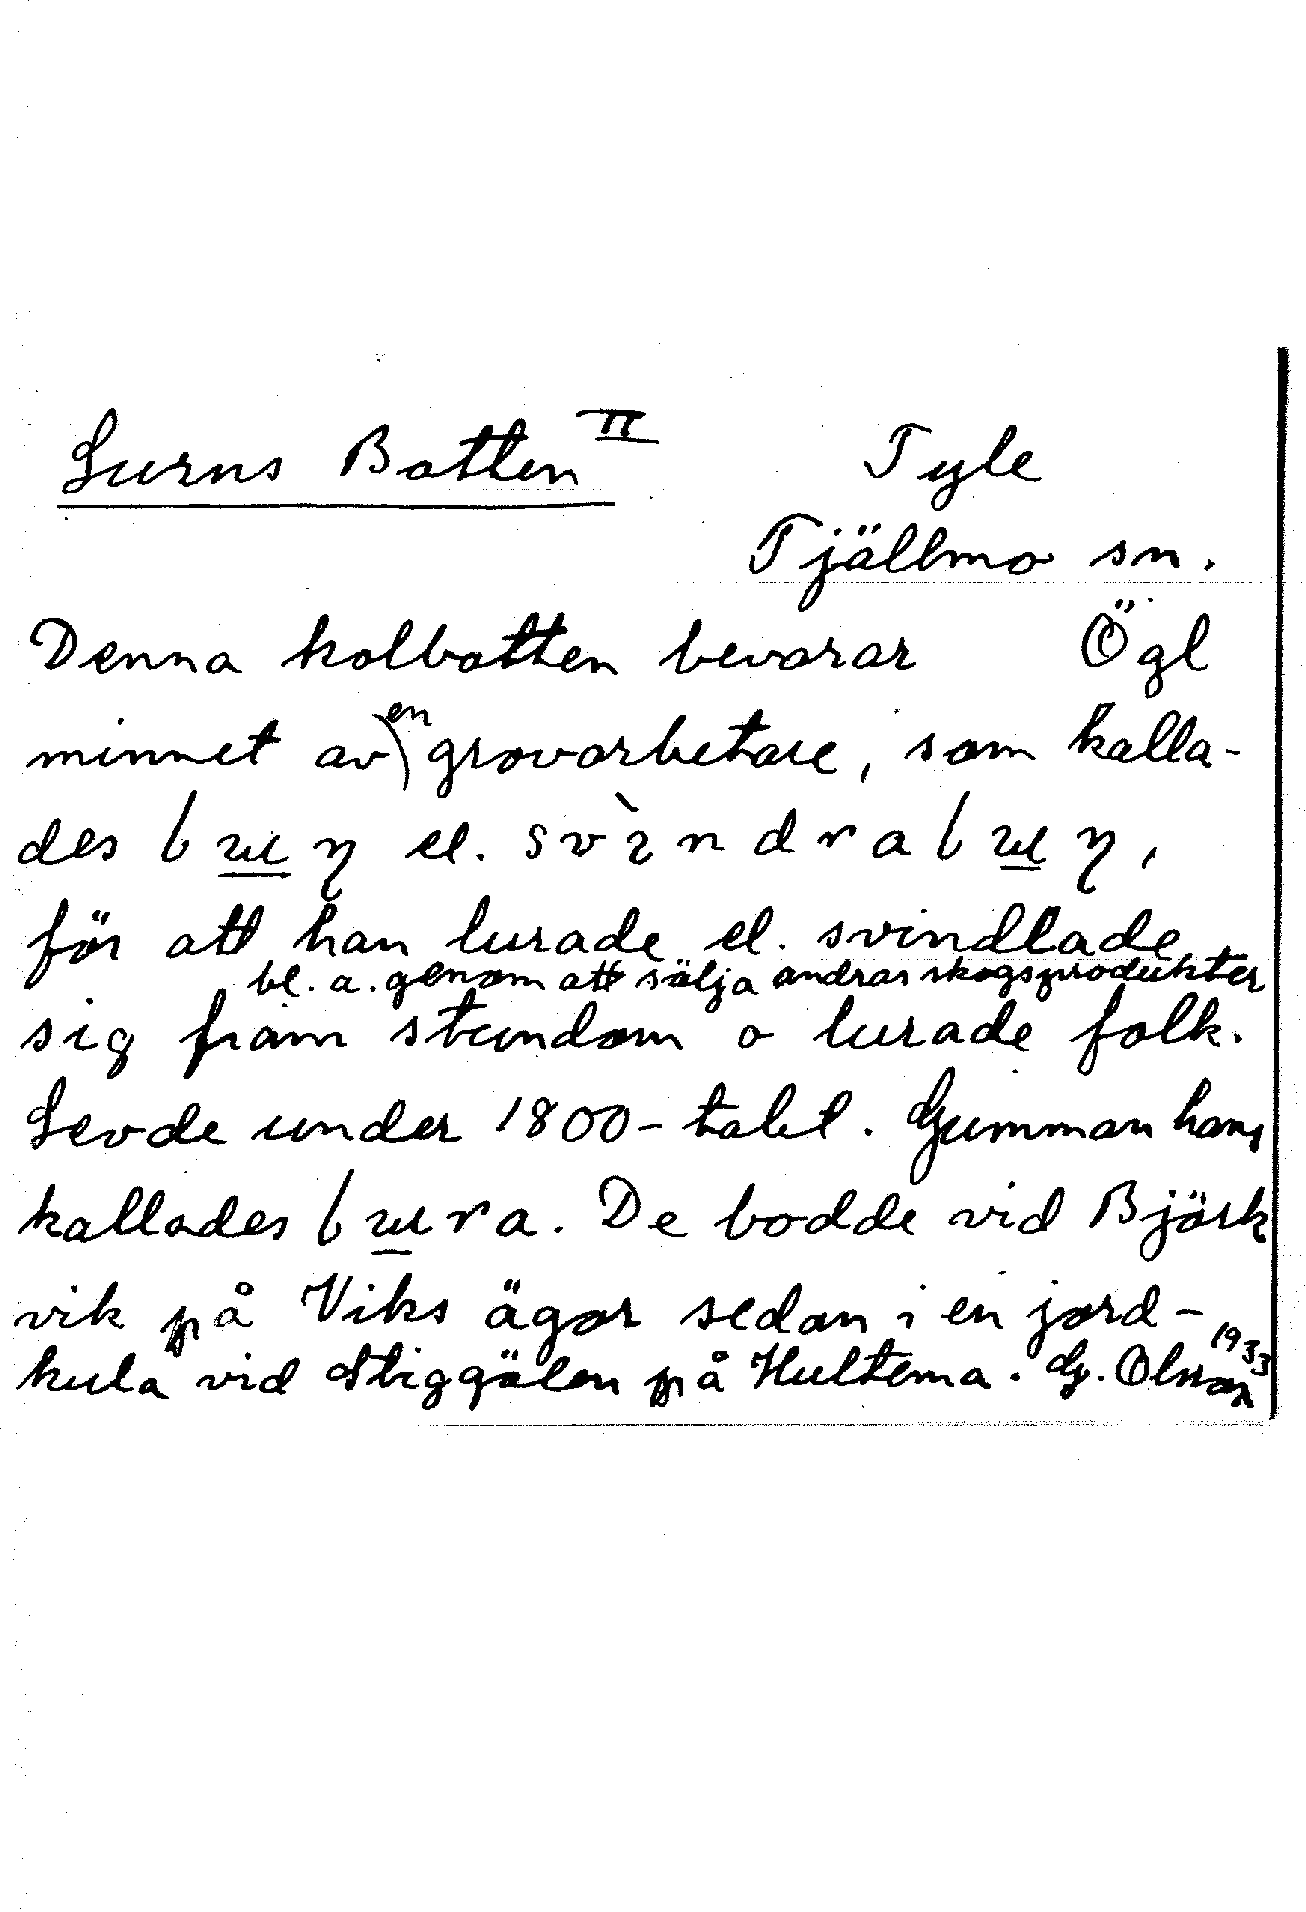 Lurns Botten II
Tyle
Tjällmo sn.
Ögl
Denna kolbotten bevarar
minnet av en grovarbetare, som kalla-
des el.
för att han lurade el. svindlade
bl. a. genom att sälja andras skogsprodukter
sig fram stundom o lurade folk.
Levde under 1800-talet. Gumman hans
kallades . De bodde vid Björk
vik på Viks ägor sedan i en jord-
kula vid Stiggölen på Hultema. G. Olsson
1933